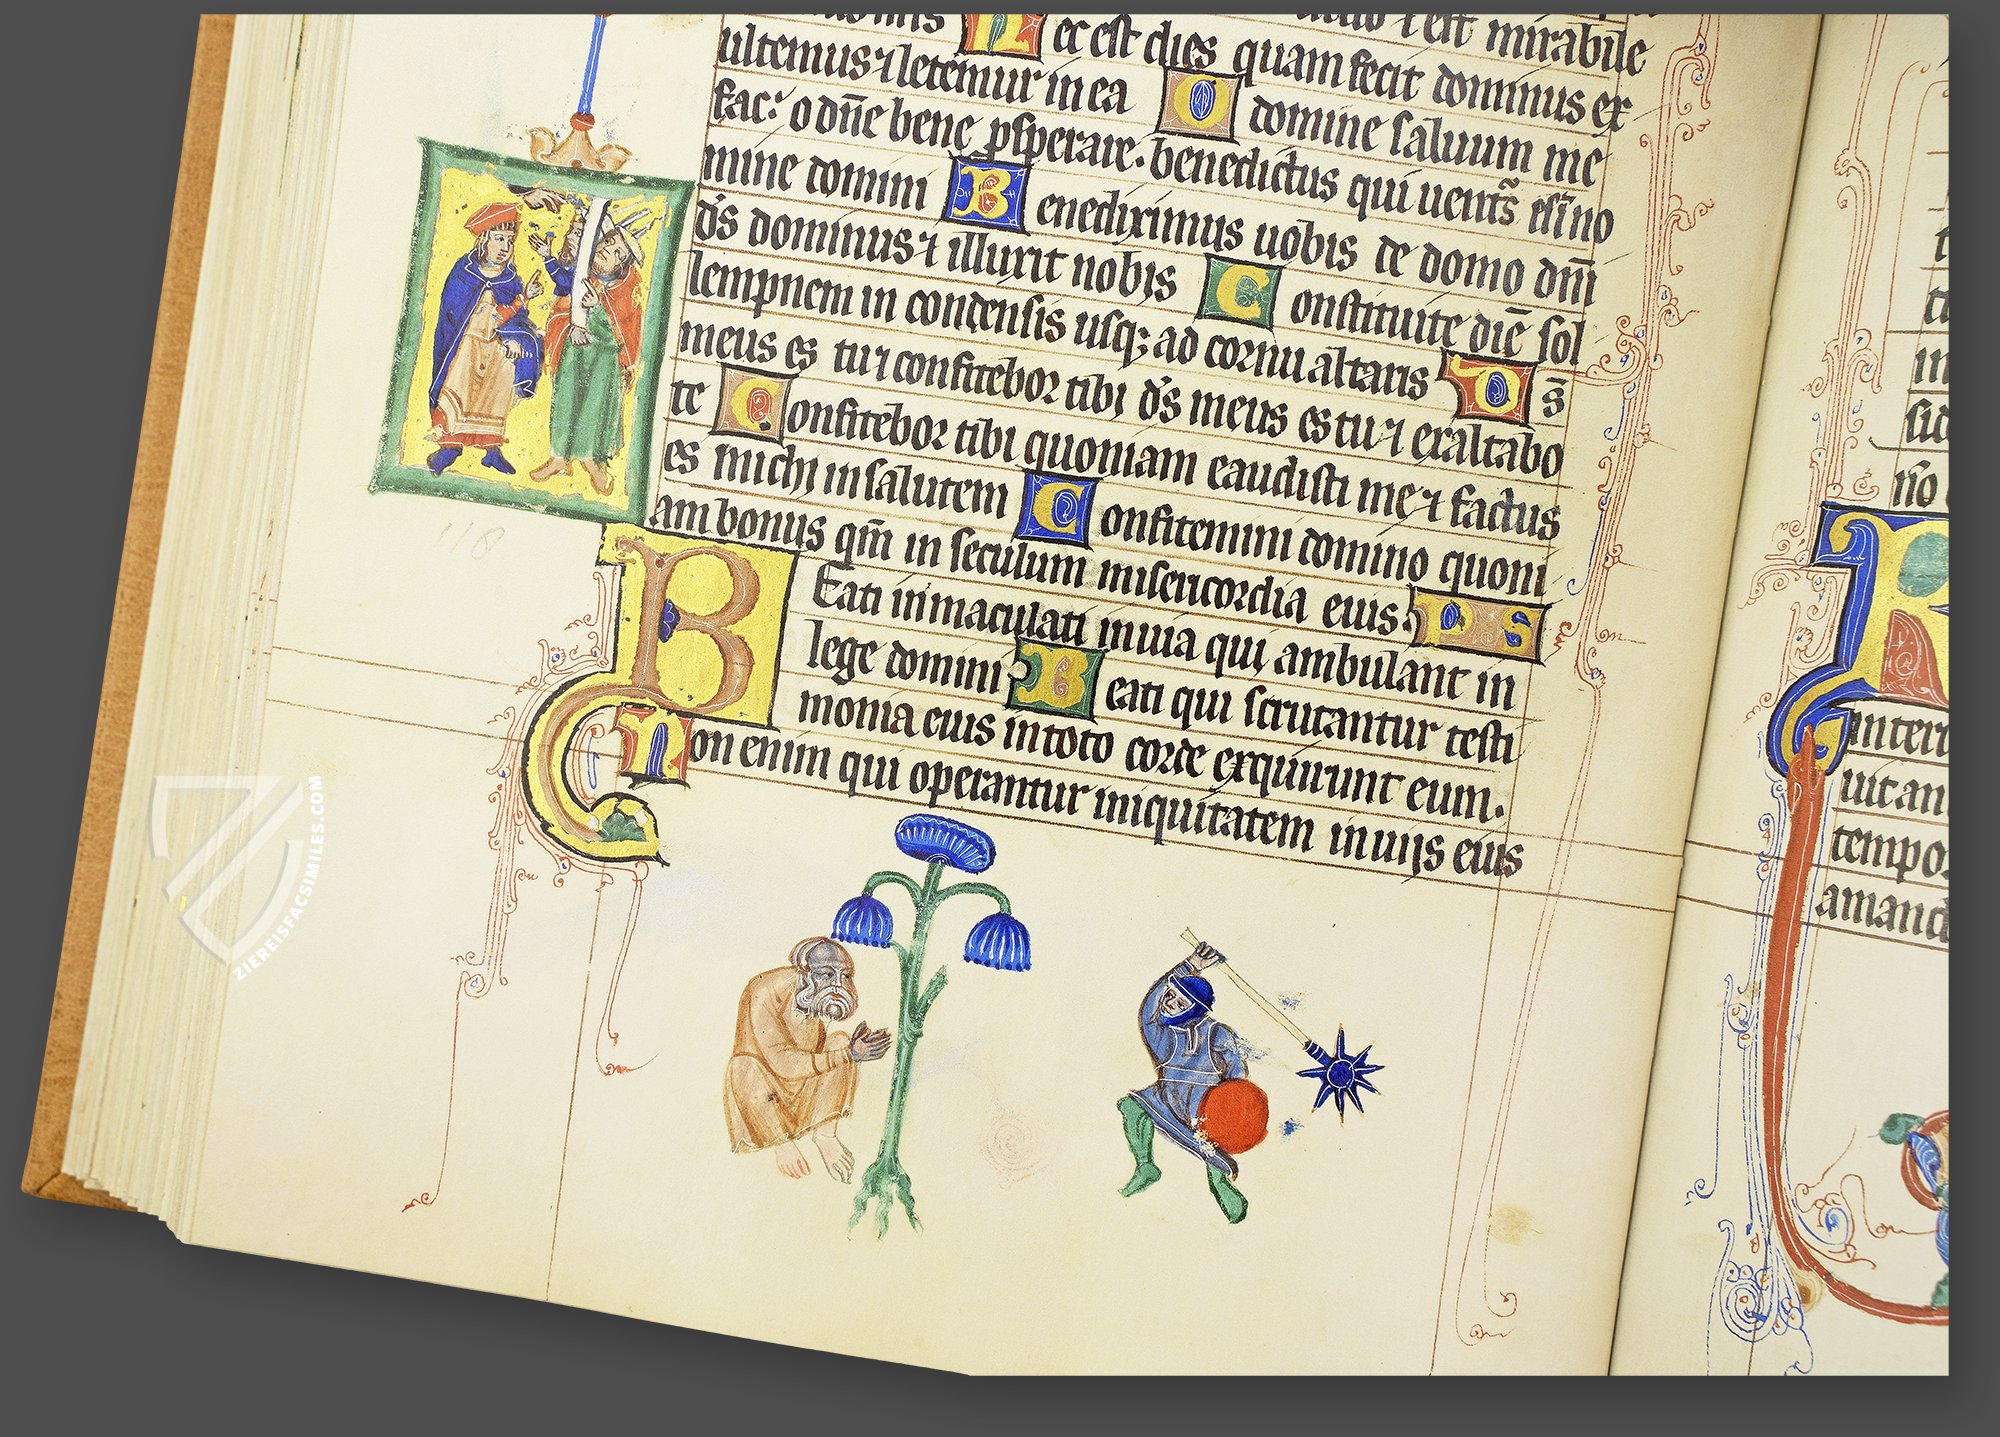 Hec est dies quam fecit dominus ex
ultemus ⁊ letemur in ea O domine saluum me
fac: o dñe bene ꝑsperare. benedictus qui uenit̃ s̃ i no
mine domini Benediximus uobis de domo dm̃
ds̃ dominus ⁊ illuxit nobis Constituite diẽ sol
lempnem in condensis usq; ad cornu altaris Ds̃
meus es tu ⁊ confitebor tibi ds̃ meus es tu ⁊ exaltabo
te Confitebor tibi quoniam exaudisti me ⁊ factus
es michi in salutem Confitemini domino quoni
am bonus qm̃ in seculum misericordia eius. ps
Beati inmaculati in uia qui ambulant in
lege domini Beati qui scrutantur testi
monia eius in toto corde exquirunt eum.
Non enim qui operantur iniquitatem in uijs eius
118
ZIEREISFACSIMILES.COM
tempo
amand